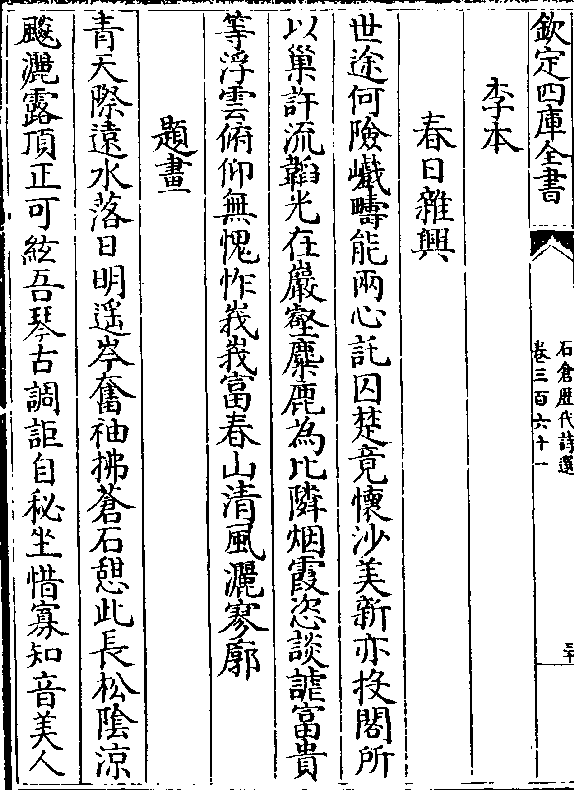 欽定四庫全書
石倉歷代詩選
卷三百六十一
李本
春日雜興
世途何險巇疇能兩心託囚楚竟懷沙美新亦投閣所
以巢許流韜光在巖壑麋鹿為比隣烟霞恣談謔富貴
等浮雲俯仰無愧怍峩峩富春山清風灑寥廓
題畫
青天際遠水落日明遥岑奮袖拂蒼石憩此長松陰涼
飈灑露頂正可絃吾琴古調詎自秘坐惜寡知音美人